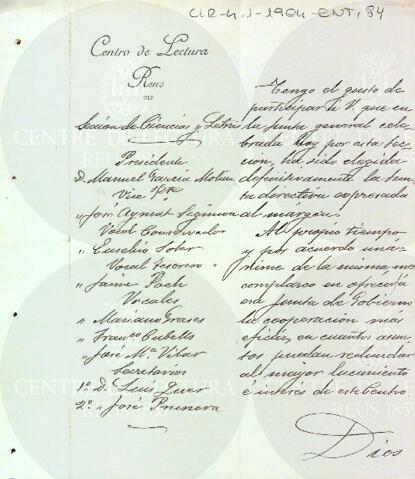 CLR-4.1-1904-ENT, 84
Centro de Lectura
Reus
Sección de Ciencias y Letras
Presidente
D. Manuel García Molin
Vice Pte
" José Aymat Segimon
Vocal Conservador
" Eusebio
Vocal Tesorero
" Jaime Poch
Vocales
" Mariano Grases
" Franco Cubells
" José Mª Vilar
Secretarios
1º D. Luis Quer
2º " José Prunera
Tengo el gusto de
participar á V. que en
la Junta general cele-
brada hoy por esta Sec-
ción, ha sido elegida
definitivamente la Jun-
ta directiva expresada
al margen.
Al propio tiempo
y por acuerdo uná-
nime de la misma, me
complazco en ofrecer á
esa Junta de Gobierno
la cooperación más
eficáz, en cuantos asun-
tos puedan redundar
al mayor lucimiento
é interés de este Centro
Dios
CENTRE DE LECTURA
REUS 1859